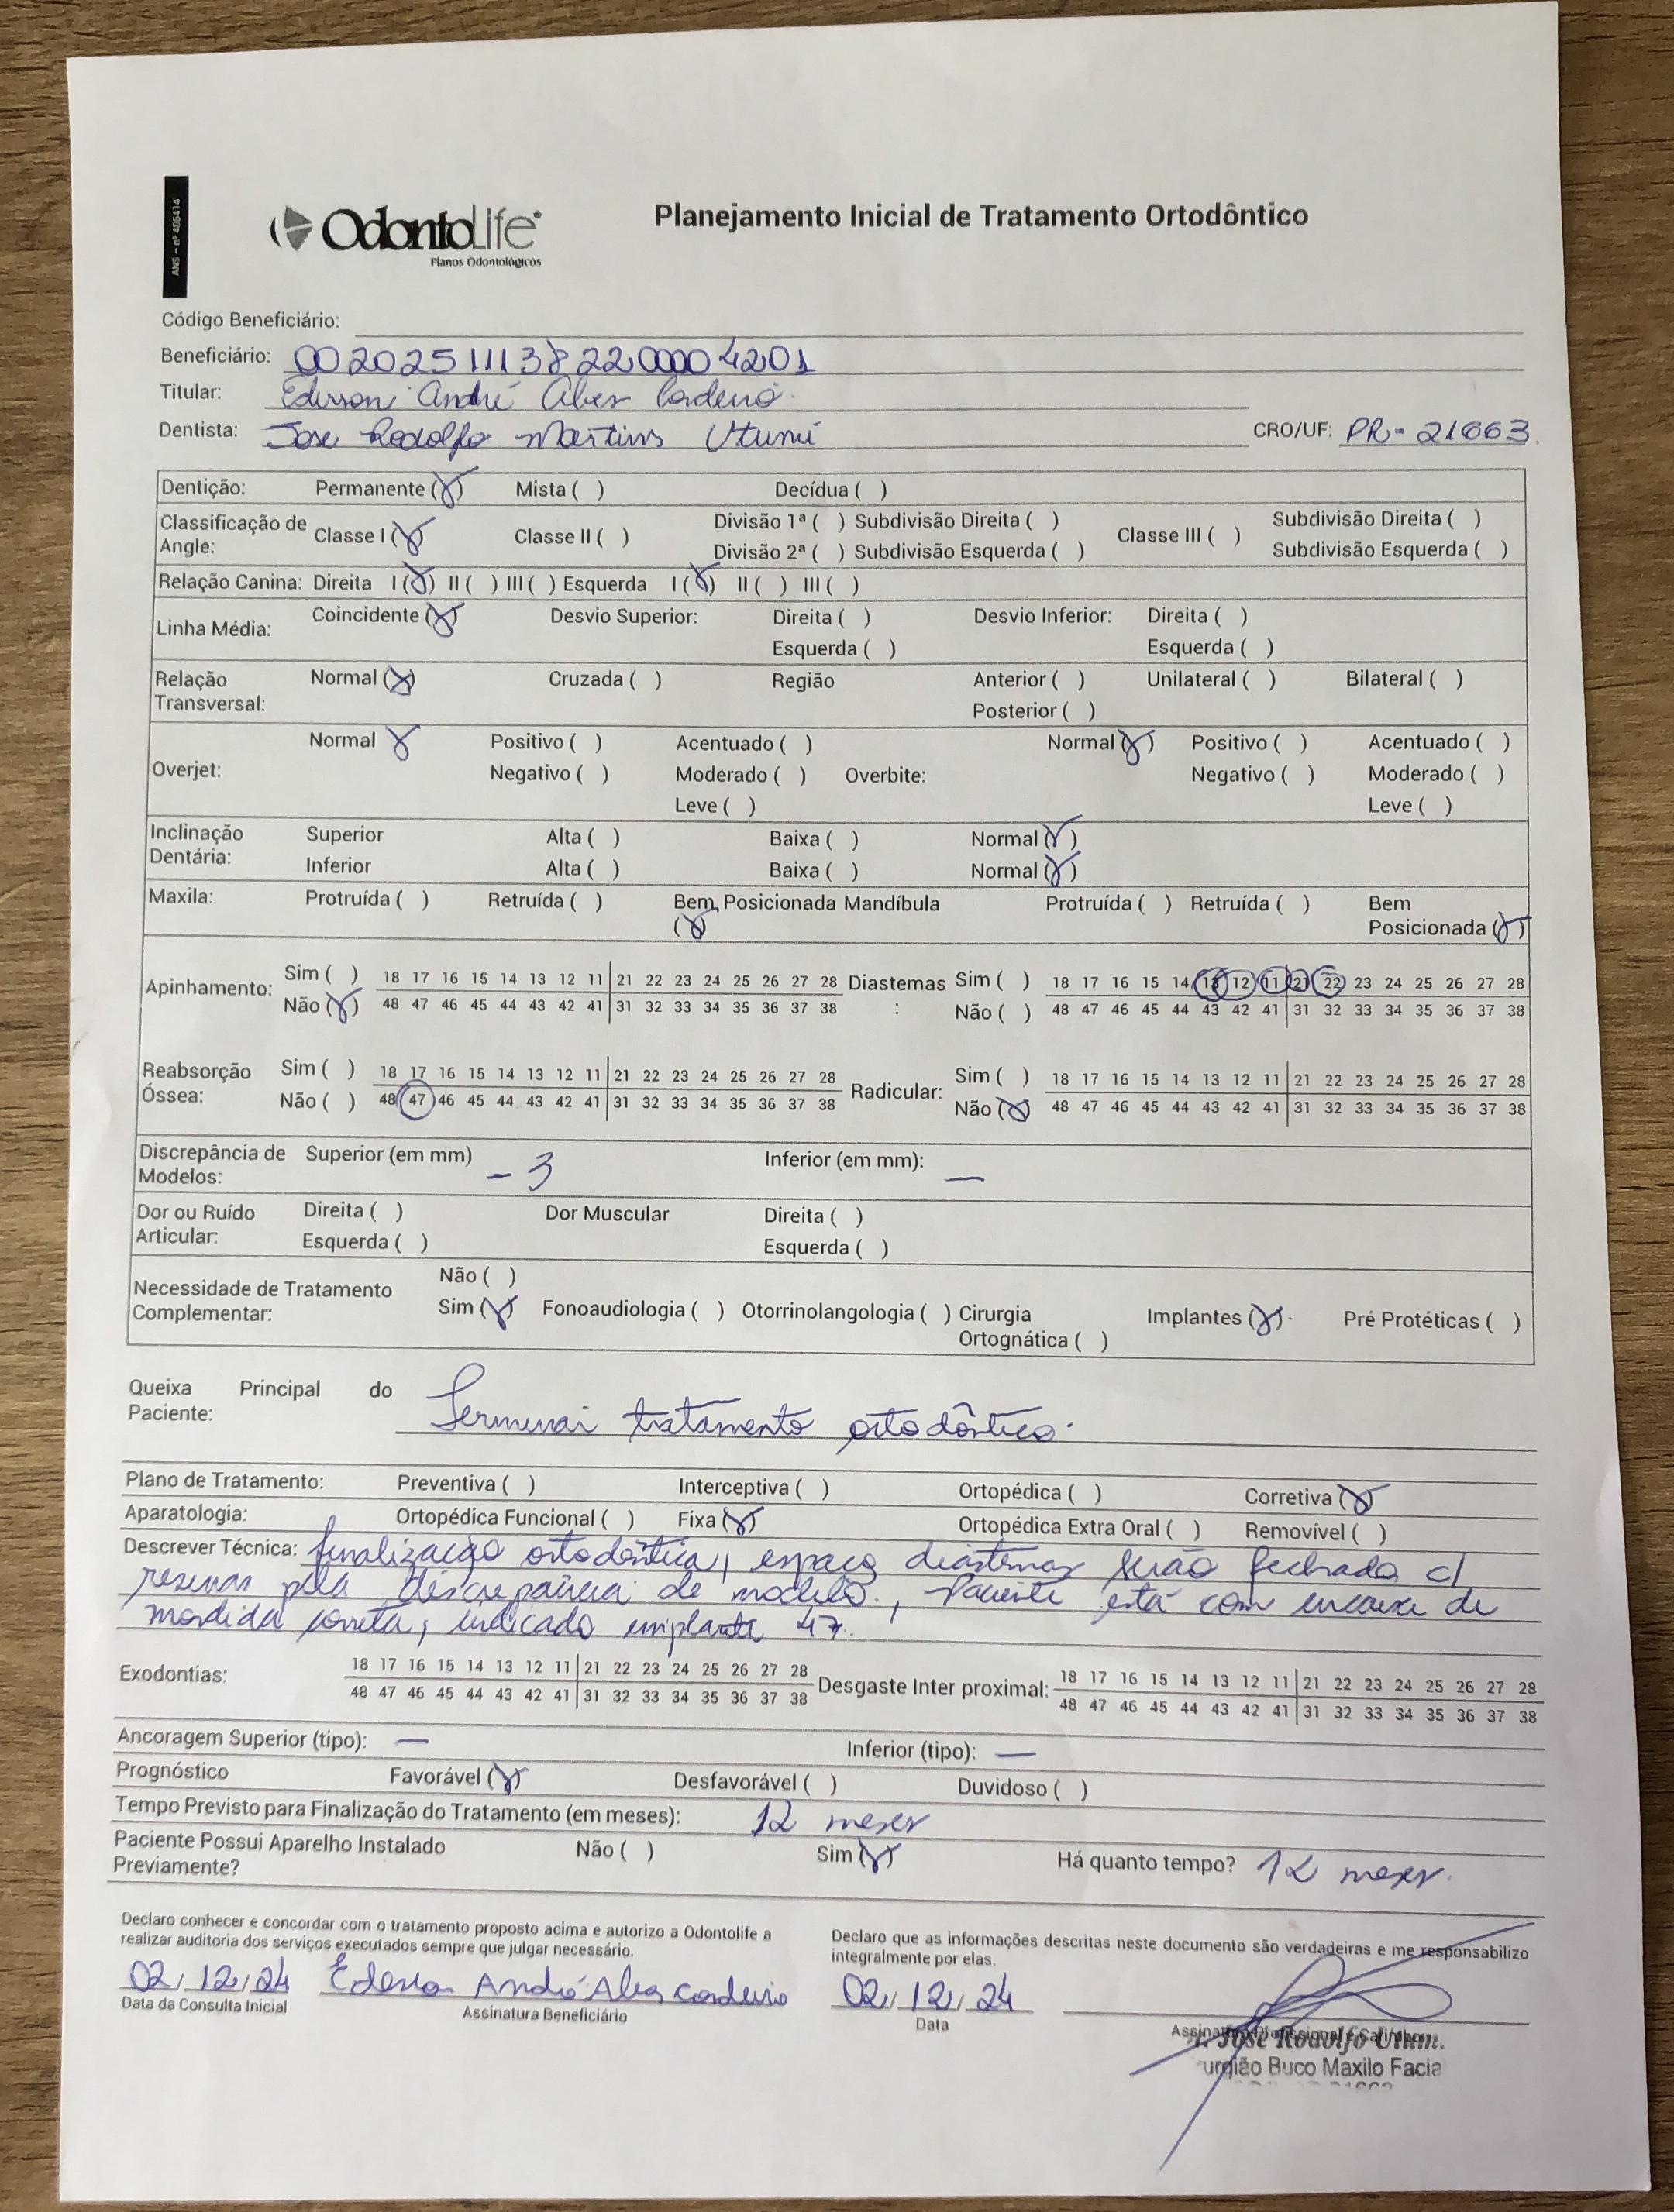 ANS - nº 406414
OdontoLife®
Planos Odontológicos
Planejamento Inicial de Tratamento Ortodôntico
Código Beneficiário:
Beneficiário: 00202511138220004201
Titular: Ederson André Alves Cordeiro.
Dentista: Jose Rodolfo Martins Utumi CRO/UF: PR-21663
Dentição: Permanente (X) Mista ( ) Decídua ( )
Classificação de Angle: Classe I (X) Classe II ( ) Divisão 1ª ( ) Subdivisão Direita ( ) Classe III ( ) Subdivisão Direita ( )
Divisão 2ª ( ) Subdivisão Esquerda ( ) Subdivisão Esquerda ( )
Relação Canina: Direita I (X) II ( ) III ( ) Esquerda I (X) II ( ) III ( )
Linha Média: Coincidente (X) Desvio Superior: Direita ( ) Desvio Inferior: Direita ( )
Esquerda ( ) Esquerda ( )
Relação Transversal: Normal (X) Cruzada ( ) Região Anterior ( ) Unilateral ( ) Bilateral ( )
Posterior ( )
Overjet: Normal X Positivo ( ) Acentuado ( ) Overbite: Normal (X) Positivo ( ) Acentuado ( )
Negativo ( ) Moderado ( ) Negativo ( ) Moderado ( )
Leve ( ) Leve ( )
Inclinação Dentária: Superior Alta ( ) Baixa ( ) Normal (X)
Inferior Alta ( ) Baixa ( ) Normal (X)
Maxila: Protruída ( ) Retruída ( ) Bem Posicionada (X) Mandíbula Protruída ( ) Retruída ( ) Bem Posicionada (X)
Apinhamento: Sim ( ) 18 17 16 15 14 13 12 11 21 22 23 24 25 26 27 28 Diastemas: Sim ( ) 18 17 16 15 14 13 12 11 21 22 23 24 25 26 27 28
Não (X) 48 47 46 45 44 43 42 41 31 32 33 34 35 36 37 38 Não ( ) 48 47 46 45 44 43 42 41 31 32 33 34 35 36 37 38
Reabsorção Óssea: Sim ( ) 18 17 16 15 14 13 12 11 21 22 23 24 25 26 27 28 Radicular: Sim ( ) 18 17 16 15 14 13 12 11 21 22 23 24 25 26 27 28
Não ( ) 48 47 46 45 44 43 42 41 31 32 33 34 35 36 37 38 Não (X) 48 47 46 45 44 43 42 41 31 32 33 34 35 36 37 38
Discrepância de Modelos: Superior (em mm) - 3 Inferior (em mm): —
Dor ou Ruído Articular: Direita ( ) Dor Muscular Direita ( )
Esquerda ( ) Esquerda ( )
Necessidade de Tratamento Complementar: Não ( )
Sim (X) Fonoaudiologia ( ) Otorrinolangologia ( ) Cirurgia Ortognática ( ) Implantes (X). Pré Protéticas ( )
Queixa Principal do Paciente: Terminar tratamento ortodôntico.
Plano de Tratamento: Preventiva ( ) Interceptiva ( ) Ortopédica ( ) Corretiva (X)
Aparatologia: Ortopédica Funcional ( ) Fixa (X) Ortopédica Extra Oral ( ) Removível ( )
Descrever Técnica: finalização ortodôntica, espaço diastemas serão fechado c/
resinas pela discrepância de modelo., Paciente está com encaixe de
mordida correta, indicado implante 47.
Exodontias: 18 17 16 15 14 13 12 11 21 22 23 24 25 26 27 28 Desgaste Inter proximal: 18 17 16 15 14 13 12 11 21 22 23 24 25 26 27 28
48 47 46 45 44 43 42 41 31 32 33 34 35 36 37 38 48 47 46 45 44 43 42 41 31 32 33 34 35 36 37 38
Ancoragem Superior (tipo): — Inferior (tipo): —
Prognóstico Favorável (X) Desfavorável ( ) Duvidoso ( )
Tempo Previsto para Finalização do Tratamento (em meses): 12 meses
Paciente Possui Aparelho Instalado Previamente? Não ( ) Sim (X) Há quanto tempo? 12 meses.
Declaro conhecer e concordar com o tratamento proposto acima e autorizo a Odontolife a
realizar auditoria dos serviços executados sempre que julgar necessário.
Declaro que as informações descritas neste documento são verdadeiras e me responsabilizo
integralmente por elas.
02/12/24 Ederson André Alves Cordeiro 02/12/24
Data da Consulta Inicial Assinatura Beneficiário Data Assinatura Profissional e Carimbo
José Rodolfo Utum.
urgião Buco Maxilo Facia